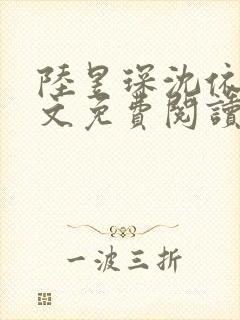 陸昱琛沈依
文免費閱讀
一波三折